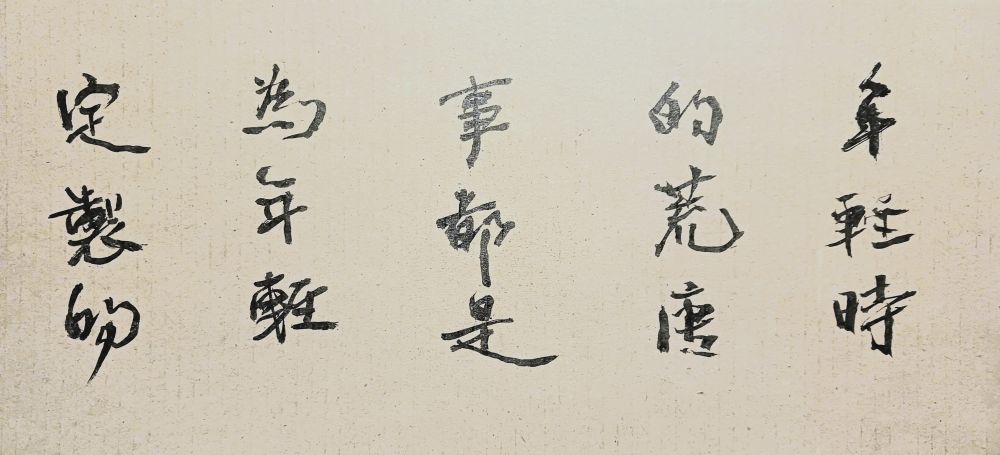 年輕時
的荒唐
事都是
為年輕
定製的